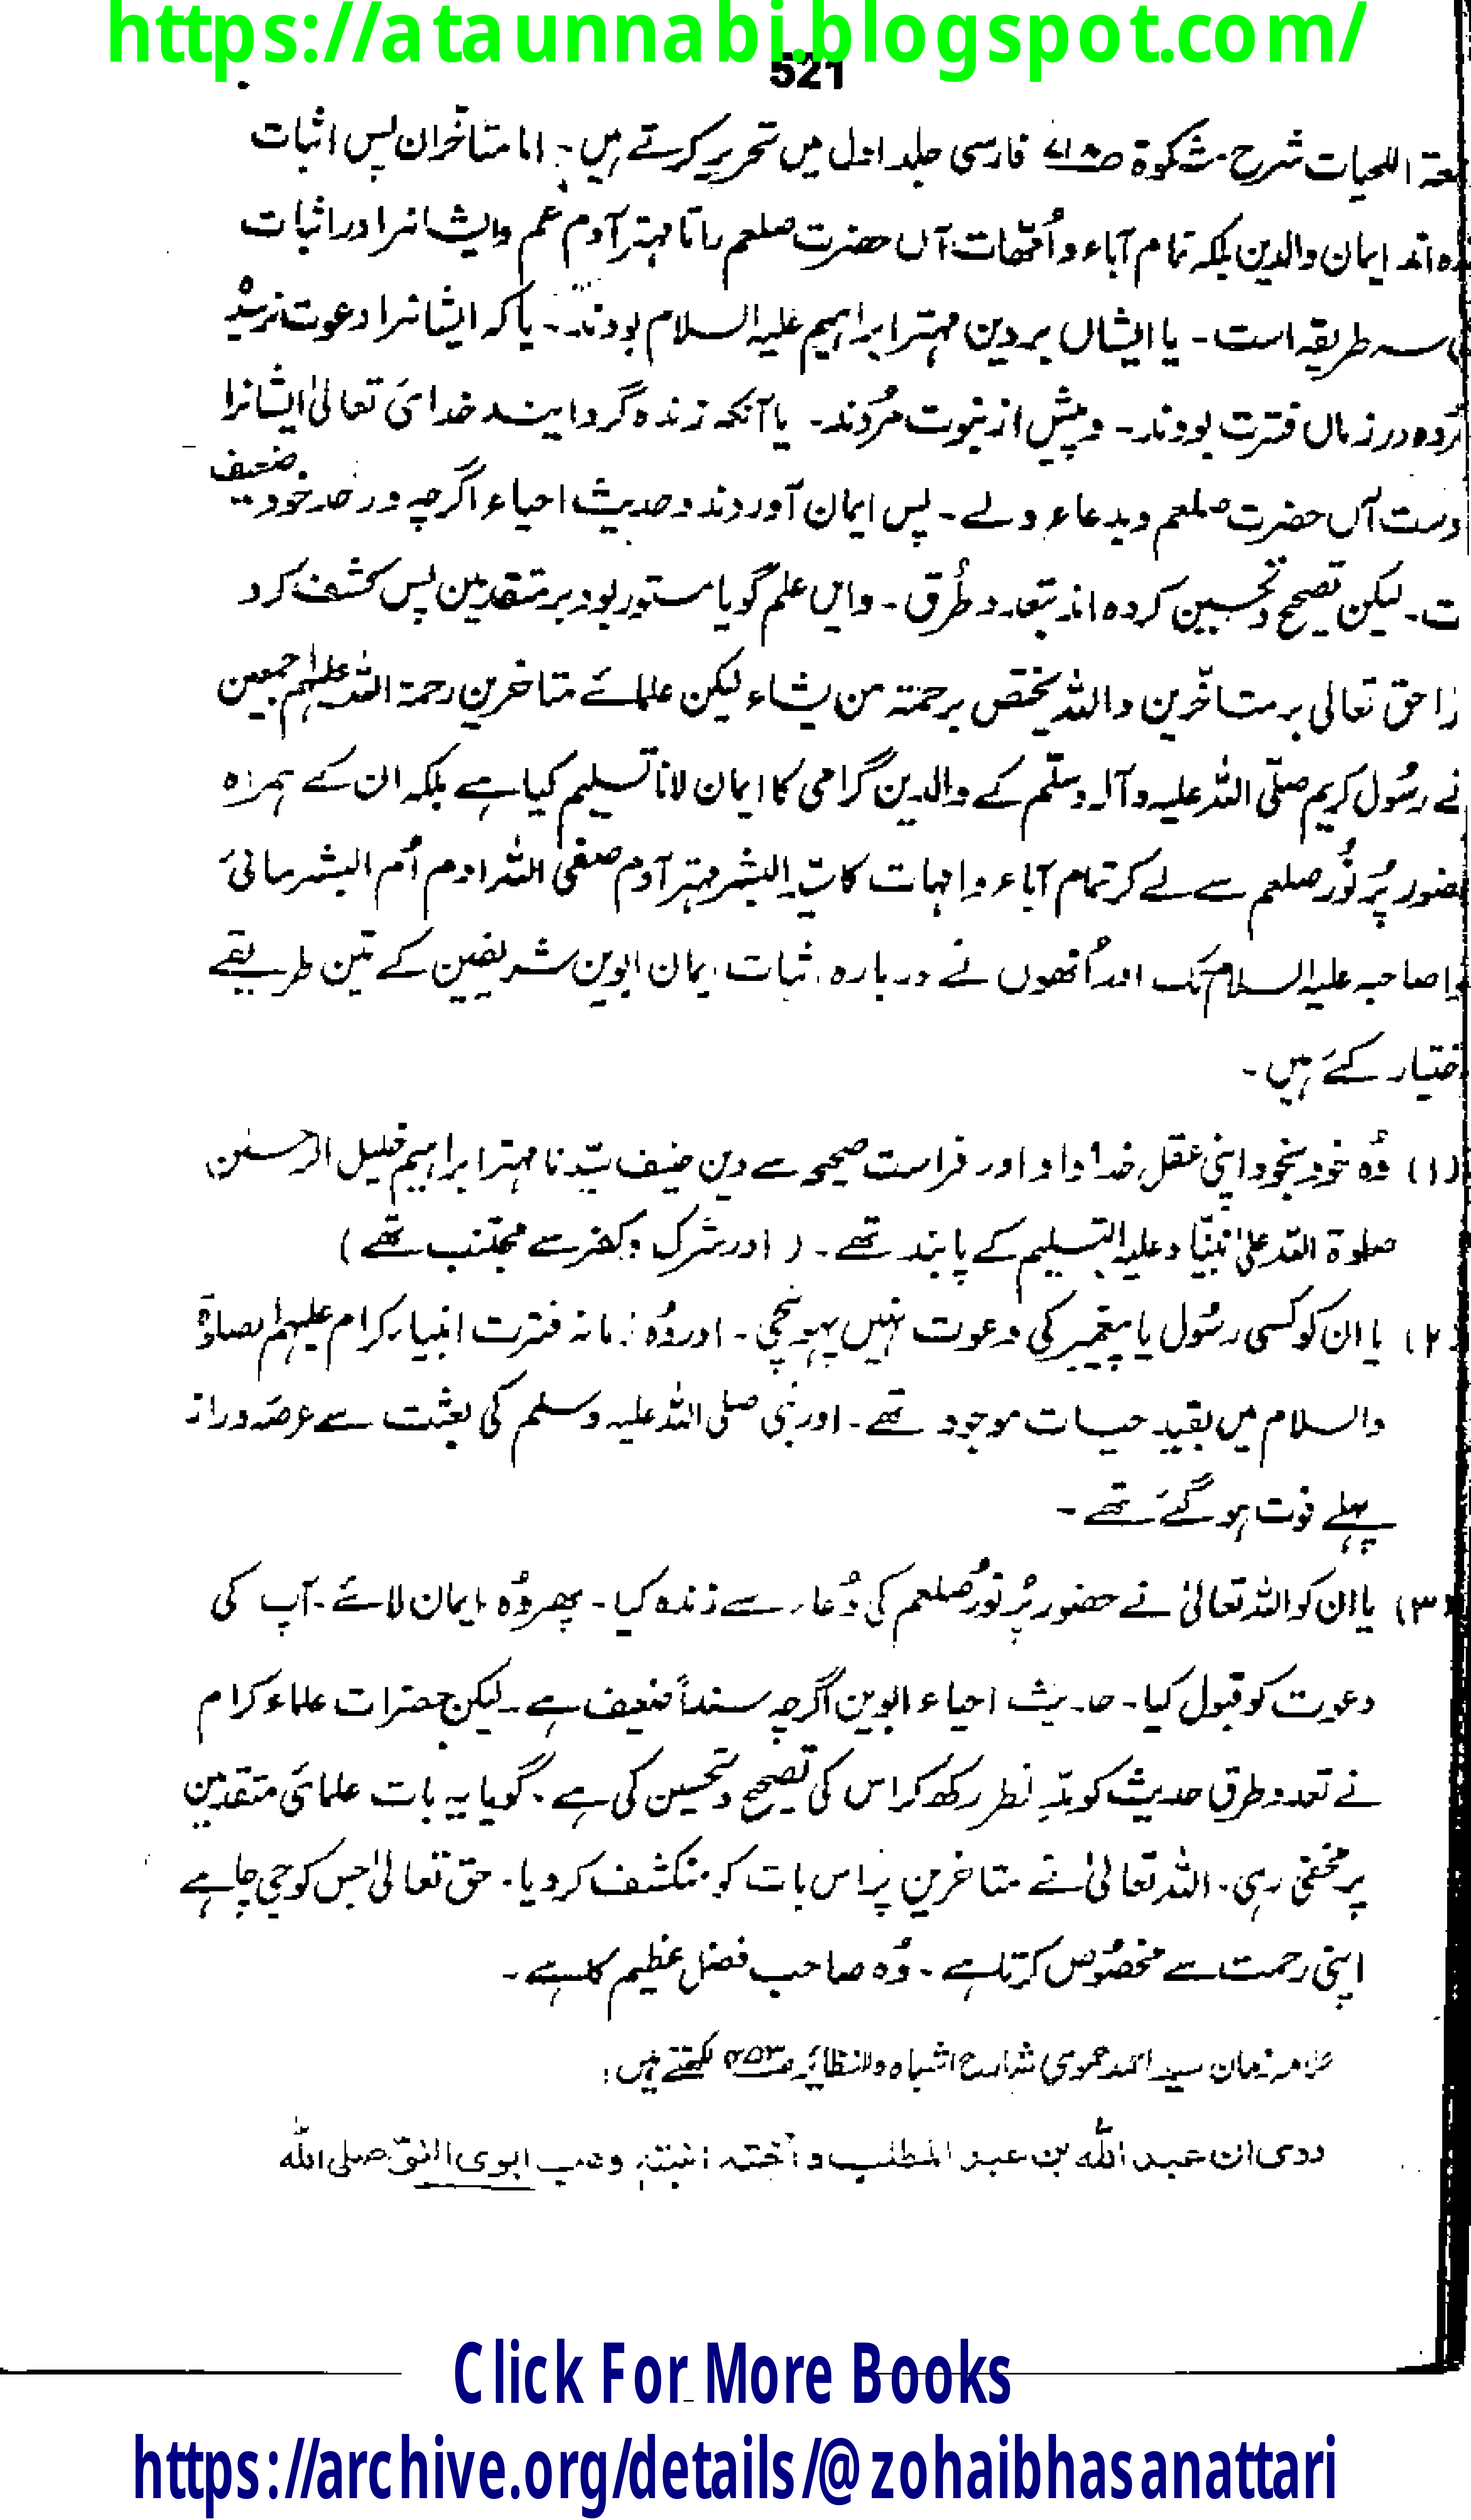 https://ataunnabi.blogspot.com/
521
اللمعات شرح مشکوٰة ص۷۱۸ فارسی جلد اول میں تحریر کرتے ہیں۔ اما متاخران پس اثبات
اند ایمان والدین بلکہ تمام آباء و اُمّھات آں حضرت صلعم را تا مہتر آدم عم وایشانرا در اثبات
سہ طریقہ است۔ یا ایشاں بر دین مہتر ابراہیم علیہ السلام بودند۔ یا کہ ایشانرا دعوت نرسید
در زماں فترت بودند۔ و پیش از نبوت مُردند۔ یا آنکہ زندہ گردایند خدائ تعالیٰ ایشانرا
دست آں حضرت صلعم و بدعاء ولے۔ پس ایمان آوردند و حدیث احیاء اگرچہ در حد خود ضعیف
ت۔ لیکن تصحیح و تحسین کردہ اند بتعدد طُرق۔ وایں علم گویا مستور بود بر متقدمین پس کشف کرد
را حق تعالی بر متاخّرین واللہ یختص برحمتہ من یشاء لیکن علمائے متاخرین رحمۃ اللہ علیہم اجمعین
نے رسُول کریم صلّی اللہ علیہ وآلہ وسلّم کے والدین گرامی کا ایمان لانا تسلیم کیا ہے بلکہ ان کے ہمراہ
حضور پُر نُور صلعم سے لے کر تمام آباء و امہات کا البشر مہتر آدم صفی اللہ ادم اُم البشر
صاحبہ علیہ السلام تک اور اُنھوں نے دربارہ اثبات ایمان ابوین شریفین کے تین طریقے
اختیار کئے ہیں۔
(۱) وُہ خود بخود اپنی عقل خداداد اور فراست صحیحہ سے دین حنیف سیّدنا مہتر ابراہیم خلیل الرحمٰن
صلوۃ اللہ علیٰ نبیّنا وعلیہ التسلیم کے پابند تھے۔ (اور شرک و کفر سے مجتنب تھے)
(۲) یا ان کو کسی رسُول یا پیغمبر کی دعوت نہیں پہونچی۔ اور وُہ زمانہ فترت انبیاء کرام علیہم الصلوٰۃ
والسلام میں بقید حیات موجود تھے۔ اور نبی صلی اللہ علیہ وسلم کی بعثت سے عرصہ دراز
پہلے فوت ہو گئے تھے۔
(۳) یا ان کو اللہ تعالیٰ نے حضور پُر نُور صلعم کی دُعا سے زندہ کیا۔ پھر وُہ ایمان لائے۔ آپ کی
دعوت کو قبول کیا۔ حدیث احیاء ابوین اگرچہ سنداً ضعیف ہے۔ لیکن حضرات علماء کرام
نے تعدد طرق حدیث کو مدِّ نظر رکھ کر اس کی تصحیح و تحسین کی ہے۔ گویا یہ بات علمائ متقدمین
پر مخفی رہی۔ اللہ تعالیٰ نے متاخرین پر اس بات کو منکشف کر دیا۔ حق تعالیٰ جس کو جی چاہے
اپنی رحمت سے مخصُوص کرتا ہے۔ وُہ صاحب فضل عظیم کا ہے۔
علامہ زمان سید احمد حموی شارح اشباہ والنظائر ص۴۵۳ لکھتے ہیں:
روی ان عبد اللہ بن عبد المطلب و آمنتہ ابنتہ وھب ابوی النبیّ صلی اللہ
Click For More Books
https://archive.org/details/@zohaibhasanattari